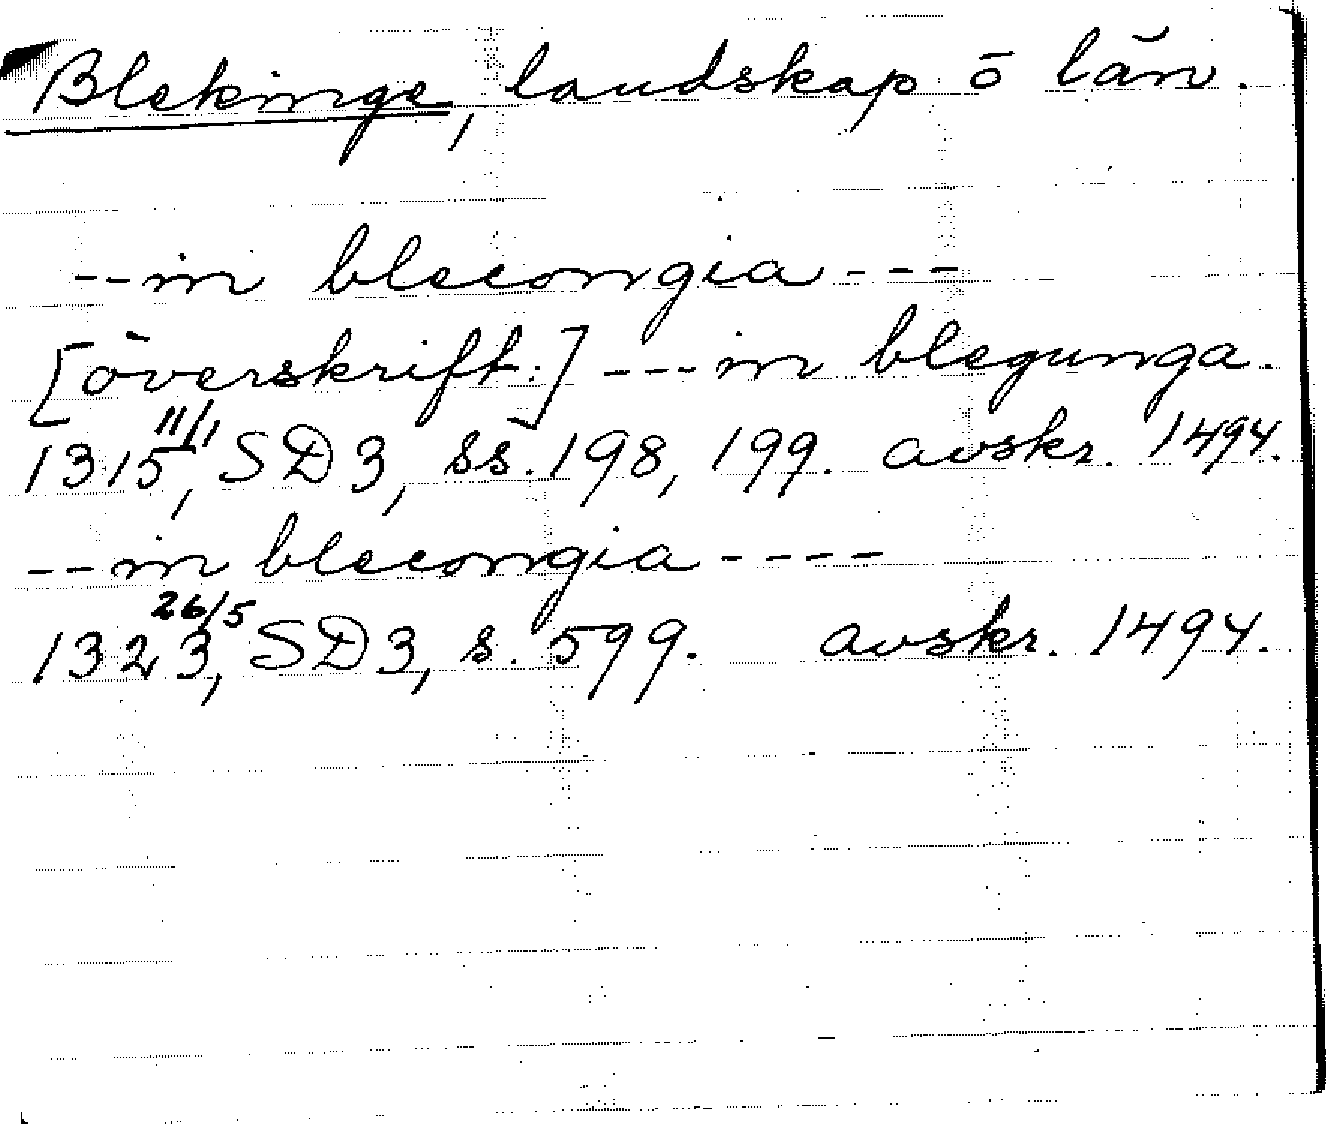 Blekinge, landskap ō län.
--in blecongia---
[överskrift:] ---in blegunga.
1315 11/1, SD3, ss. 198, 199. avskr. 1494.
--in blecongia----
1323 26/5, SD3, s. 599. avskr. 1494.